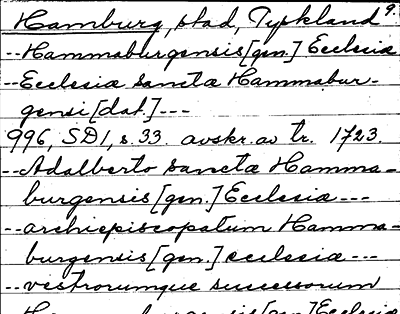 Hamburg, stad, Tyskland 9.
--Hammaburgensis[gen.] Ecclesiæ
--Ecclesiæ sanctæ Hammabur-
gensi[dat.]---
996, SD1, s. 33. avskr. av tr. 1723.
--Adalberto sanctæ Hamma-
burgensis[gen.] Ecclesiæ ---
--archiepiscopatum Hamma-
burgensis[gen.] ecclesiæ ---
--vestrorumque successorum